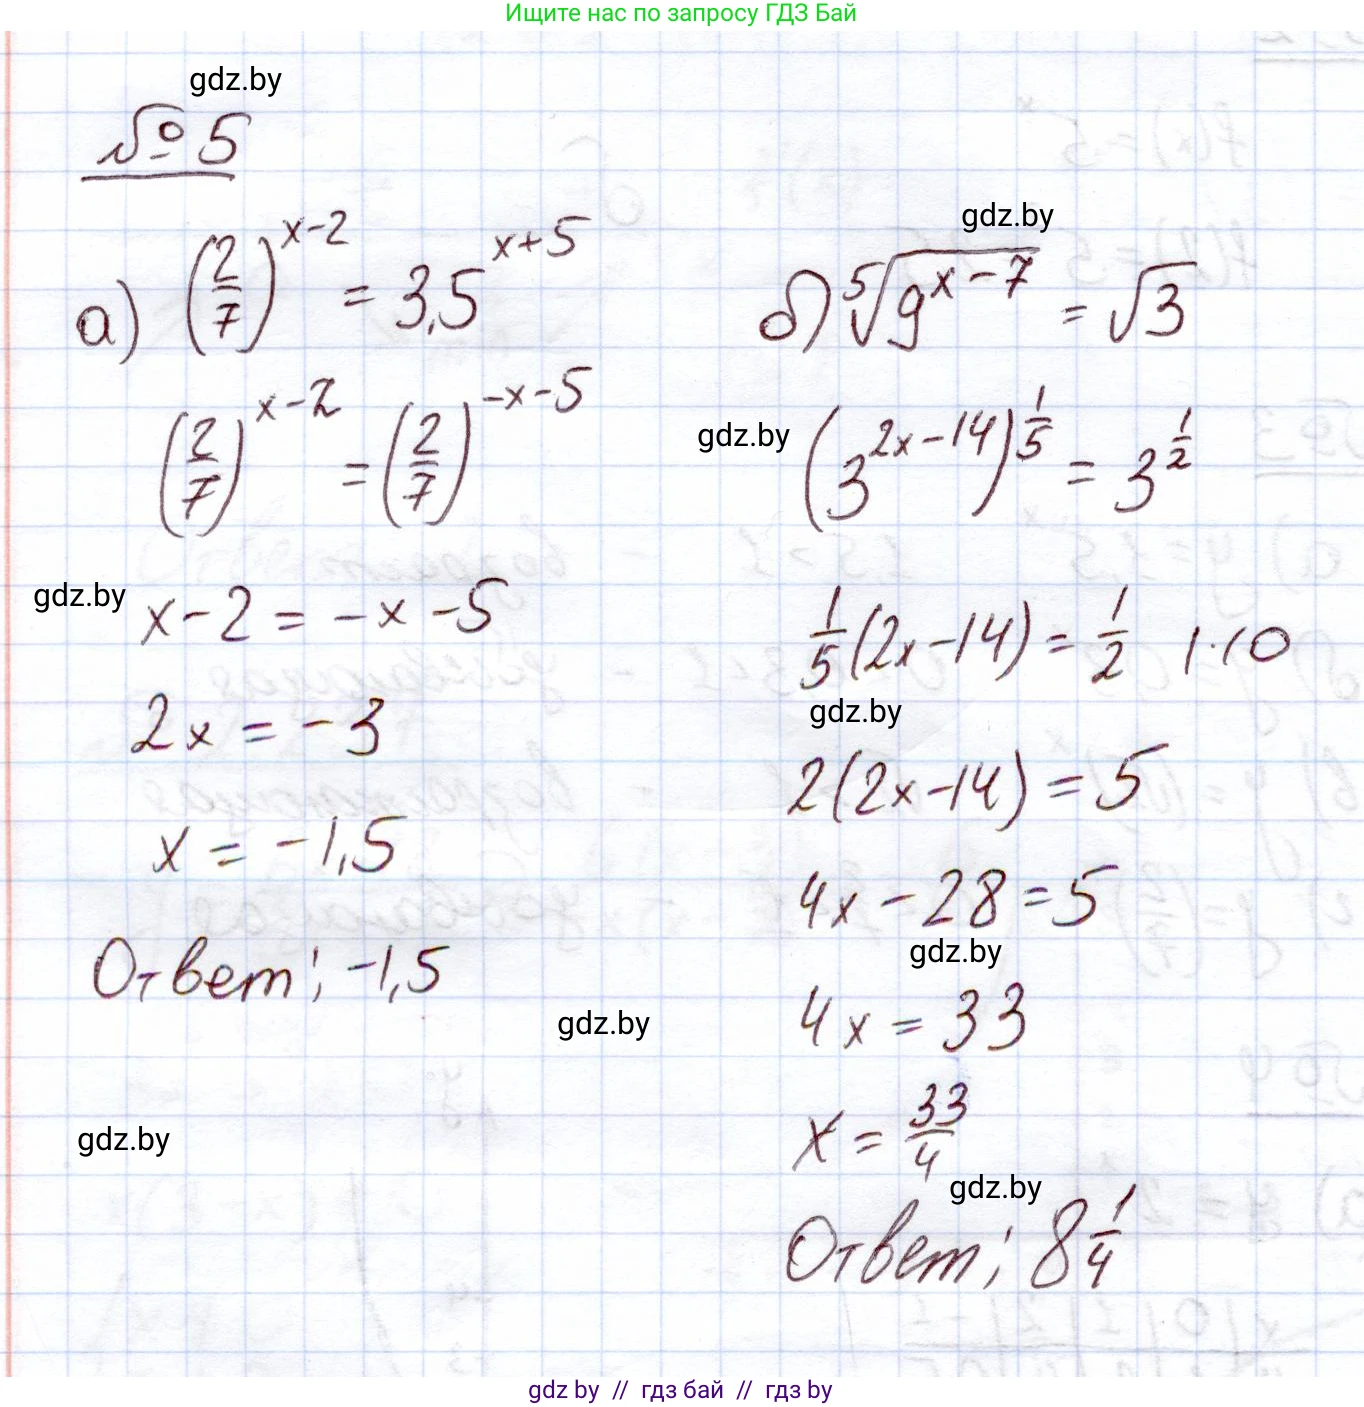 Ищите нас по запросу ГДЗ Бай
gdz.by
№ 5
а) (2/7)^(x-2) = 3,5^(x+5)
(2/7)^(x-2) = (2/7)^(-x-5)
gdz.by
x-2 = -x-5
2x = -3
x = -1,5
Ответ: -1,5
gdz.by
gdz.by
gdz.by
б) ⁵√(9^(x-7)) = √3
gdz.by
(3^(2x-14))^(1/5) = 3^(1/2)
1/5(2x-14) = 1/2 |·10
gdz.by
2(2x-14) = 5
4x - 28 = 5
gdz.by
4x = 33
x = 33/4
gdz.by
Ответ: 8 1/4
gdz by // гдз бай // гдз by